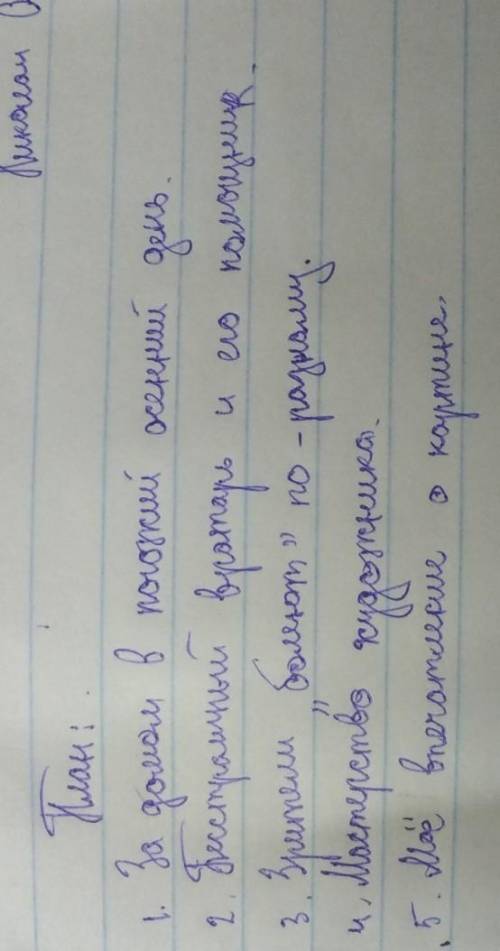 План:
1. За домом в погожий осенний день.
2. Бесстрашный вратарь и его помощник.
3. Зрители „болеют” по-разному.
4. Мастерство художника.
5. Моё впечатление о картине.